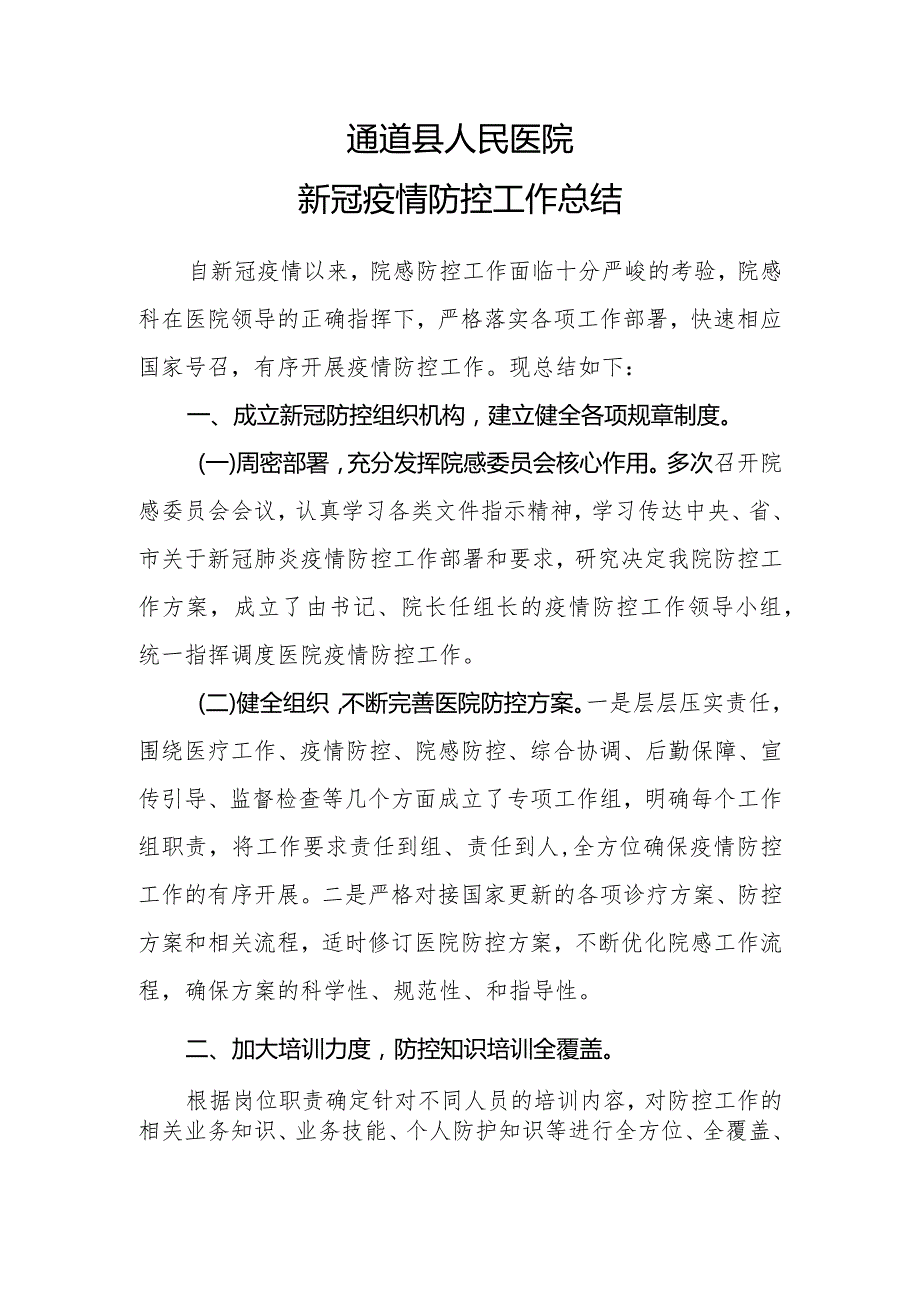 通道县人民医院
新冠疫情防控工作总结
自新冠疫情以来，院感防控工作面临十分严峻的考验，院感
科在医院领导的正确指挥下，严格落实各项工作部署，快速相应
国家号召，有序开展疫情防控工作。现总结如下：
一、成立新冠防控组织机构，建立健全各项规章制度。
(一)周密部署，充分发挥院感委员会核心作用。多次召开院
感委员会会议，认真学习各类文件指示精神，学习传达中央、省、
市关于新冠肺炎疫情防控工作部署和要求，研究决定我院防控工
作方案，成立了由书记、院长任组长的疫情防控工作领导小组，
统一指挥调度医院疫情防控工作。
(二)健全组织，不断完善医院防控方案。一是层层压实责任，
围绕医疗工作、疫情防控、院感防控、综合协调、后勤保障、宣
传引导、监督检查等几个方面成立了专项工作组，明确每个工作
组职责，将工作要求责任到组、责任到人,全方位确保疫情防控
工作的有序开展。二是严格对接国家更新的各项诊疗方案、防控
方案和相关流程，适时修订医院防控方案，不断优化院感工作流
程，确保方案的科学性、规范性、和指导性。
二、加大培训力度，防控知识培训全覆盖。
根据岗位职责确定针对不同人员的培训内容，对防控工作的
相关业务知识、业务技能、个人防护知识等进行全方位、全覆盖、